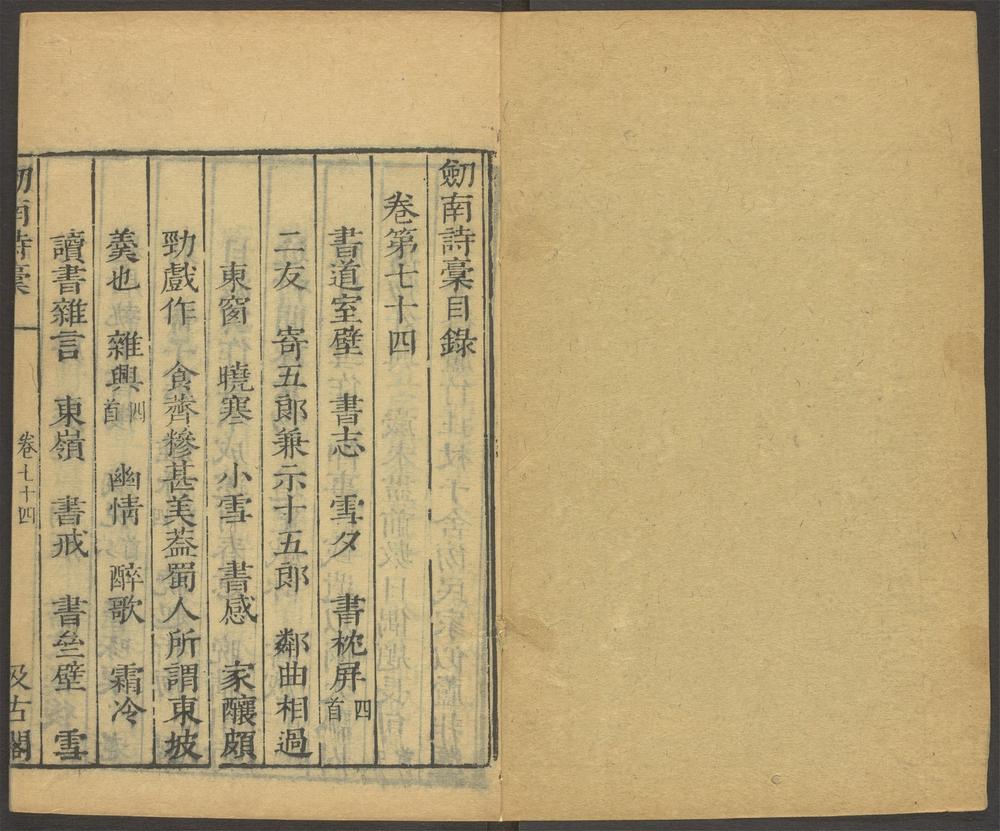 劒南詩稾目錄
卷第七十四
書道室壁　書志　雪夕　書枕屏四首
二友　寄五郎兼示十五郎　鄰曲相過
東窗　曉寒　小雪　書感　家釀頗
勁戲作　食薺糝甚美葢蜀人所謂東坡
羹也　雜興四首　幽情　醉歌　霜冷
讀書雜言　東嶺　書戒　書壘壁　雪
劒南詩稾　卷七十四　汲古閣